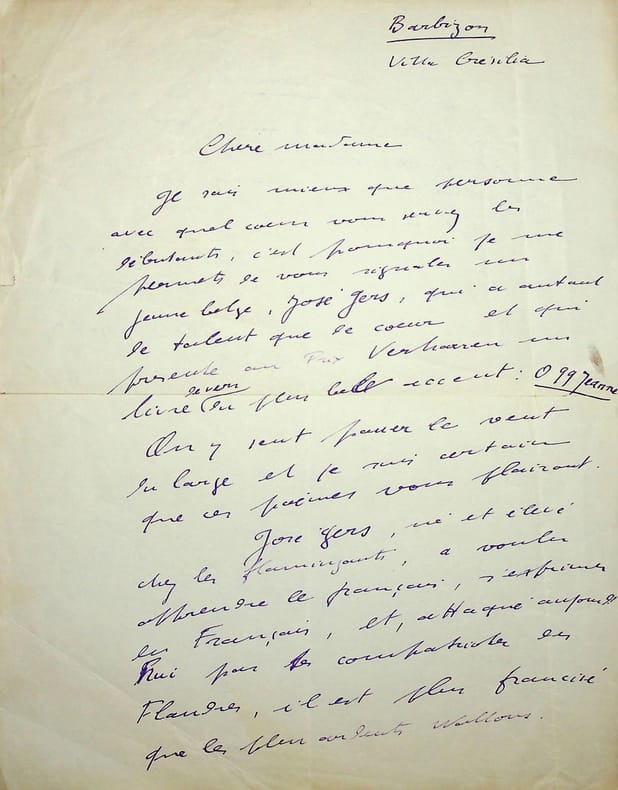 Barbizon
Villa Crésilia
Chere madame
Je sais mieux que personne
avec quel coeur vous servez les
débutants, c'est pourquoi je me
permets de vous signaler un
jeune belge, José Gers, qui a autant
de talent que de coeur et qui
presente au Prix Verhaeren un
livre de vers du plus bel accent : O 99 Jeanne
On y sent passer le vent
du large et je suis certain
que ces poèmes vous plairont.
José Gers, né et élevé
chez les flamingants, a voulu
apprendre le français, s'exprimer
en Français, et, attaqué aujourd'
hui par les compatriotes des
Flandres, il est plus francisé
que les plus ardents wallons.